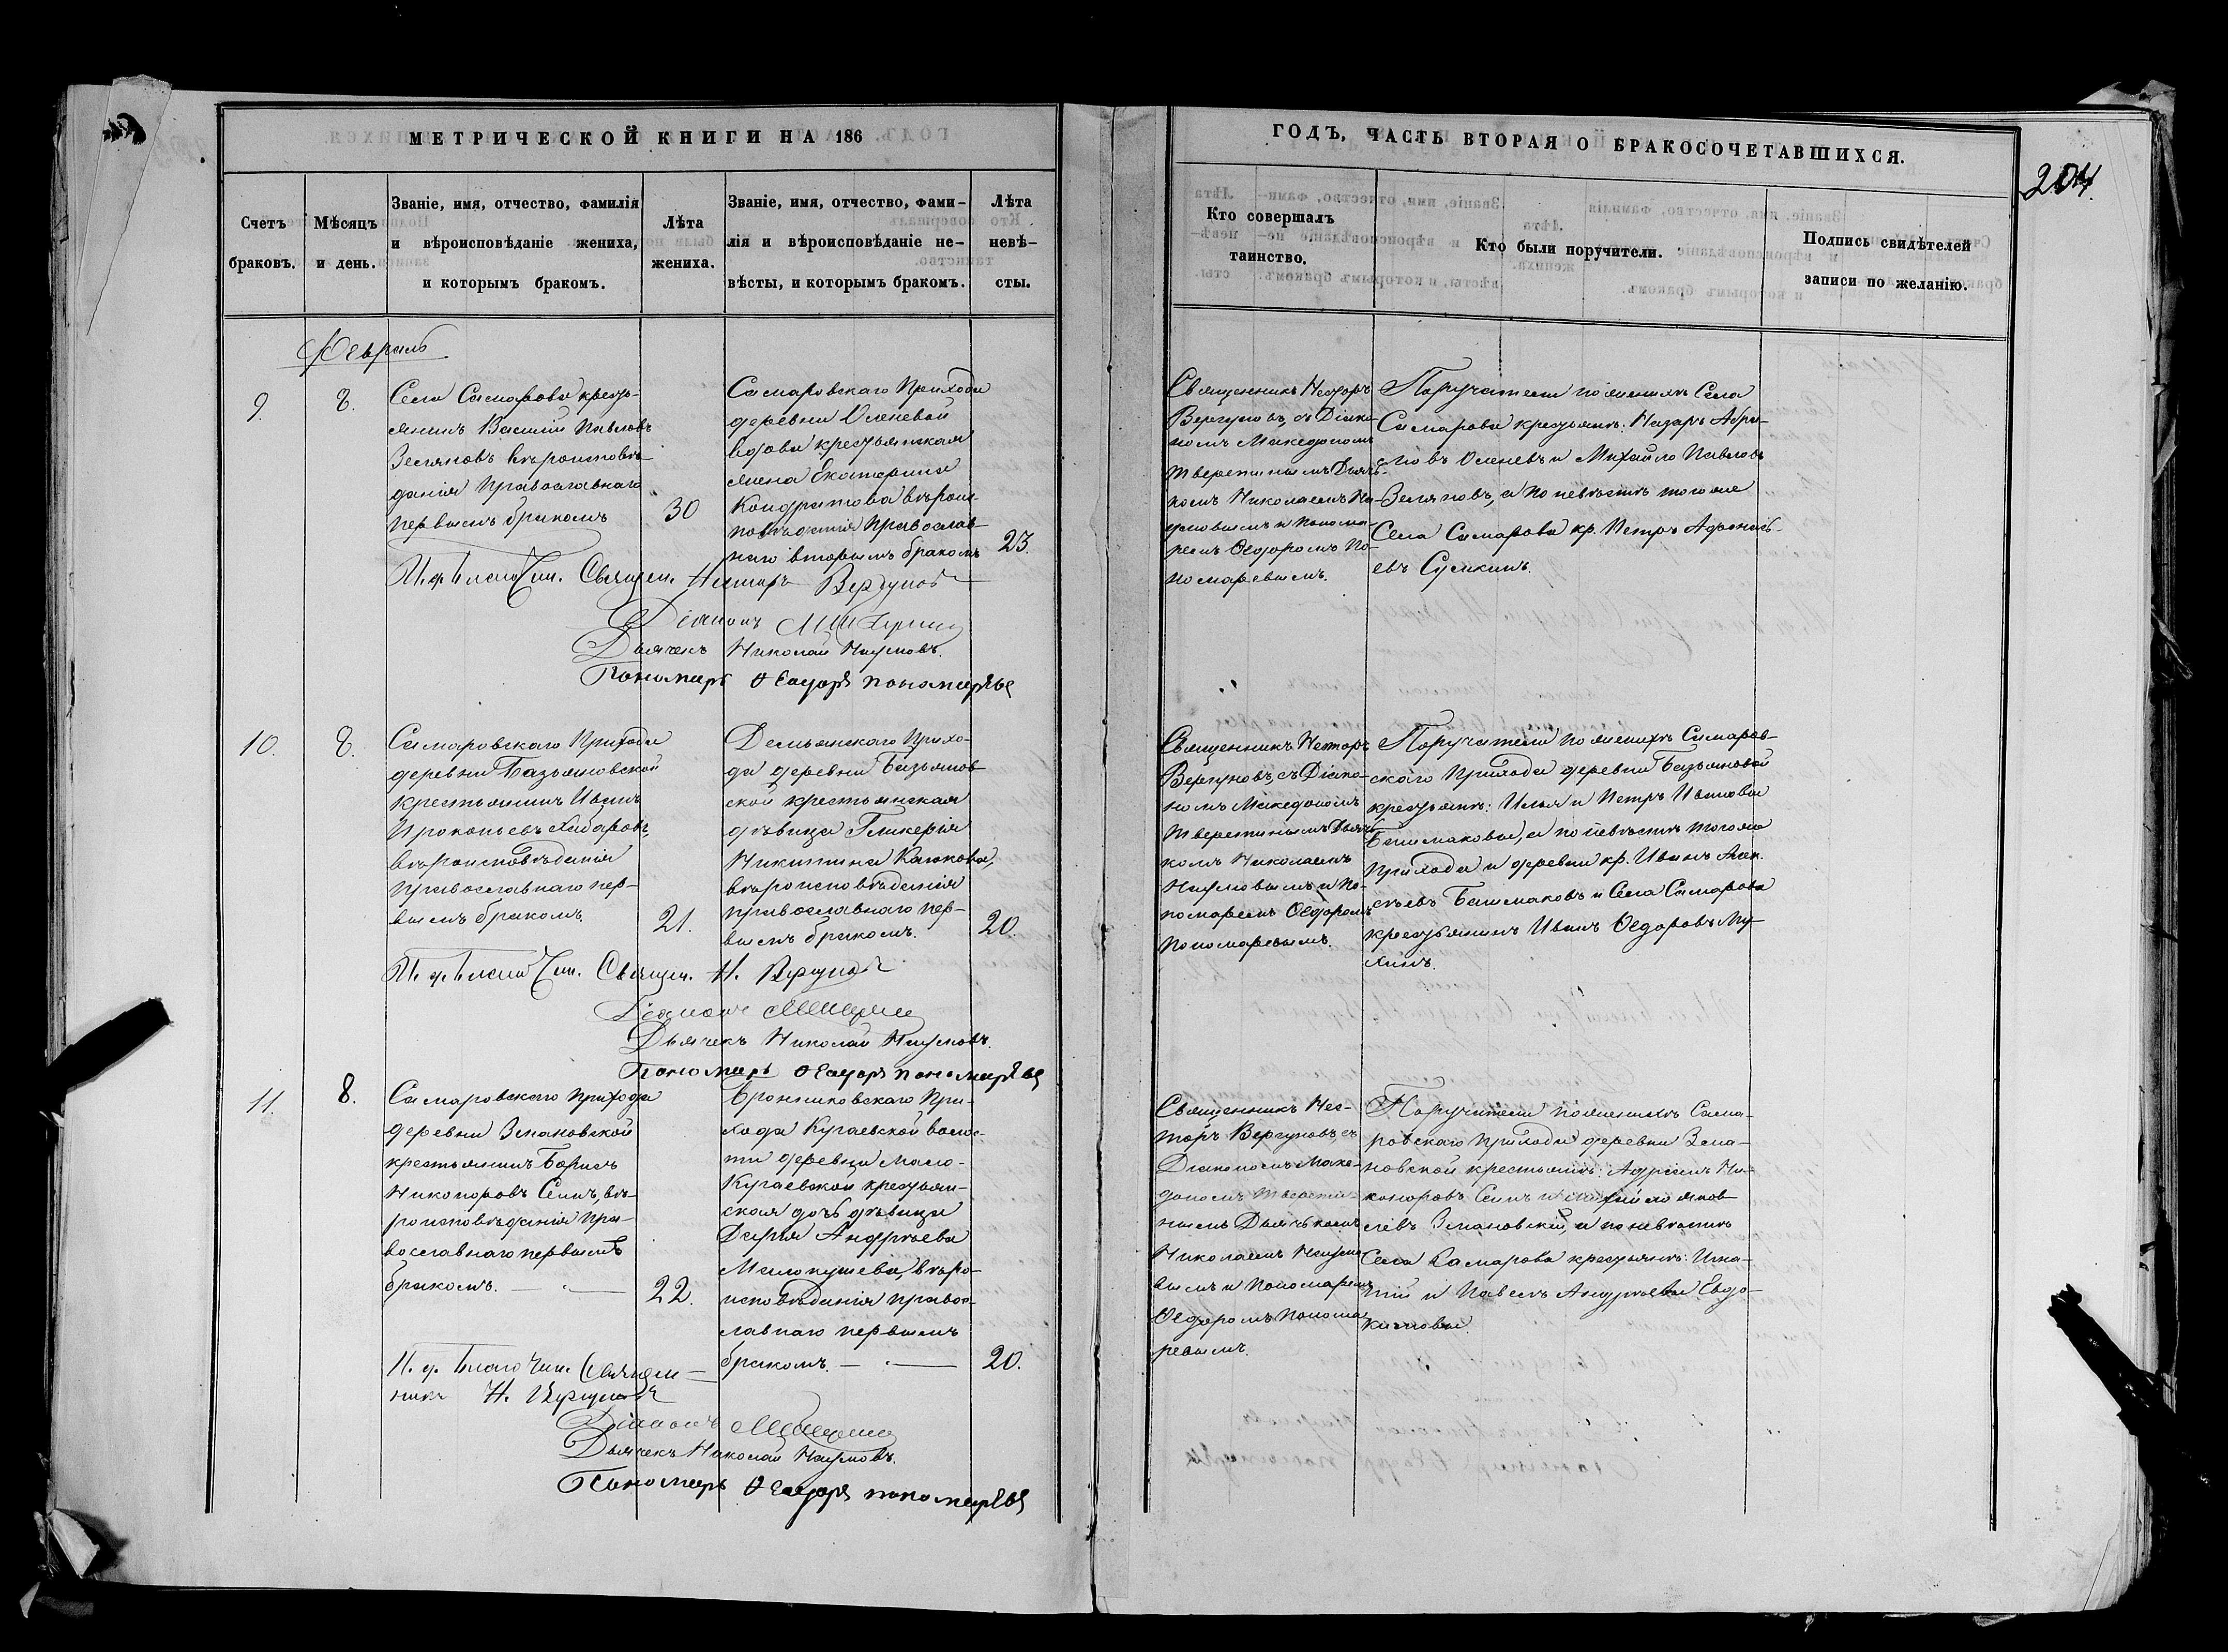 МЕТРИЧЕСКОЙ КНИГИ НА 186
ГОДЪ, ЧАСТЬ ВТОРАЯ О БРАКОСОЧЕТАВШИХСЯ.
204.
Счетъ
браковъ.
Мѣсяцъ
и день.
Званіе, имя, отчество, фамилія
и вѣроисповѣданіе жениха,
и которымъ бракомъ.
Лѣта
жениха.
Званіе, имя, отчество, фами-
лія и вѣроисповѣданіе не-
вѣсты, и которымъ бракомъ.
Лѣта
невѣ-
сты.
Кто совершалъ
таинство.
Кто были поручители.
Подпись свидѣтелей
записи по желанію.
Февраль
9.
8.
Села Самарова кресть-
янинъ Василій Павловъ
Земляновъ вѣроисповѣ-
данія Православнаго
первымъ бракомъ
30
Самаровскаго Прихода
деревни Оленевой
вдова крестьянская
жена Екатерина
Кондратова вѣроис-
повѣданія Православ-
наго вторымъ бракомъ
23.
Священникъ Несторъ
Вергуновъ, съ Діако-
номъ Македономъ
Тверетинымъ Дьяч-
комъ Николаемъ На-
умовымъ и Понома-
ремъ Ѳедоромъ По-
номаревымъ.
Поручители по женихѣ Села
Самарова крестьяне: Назаръ Абра-
мовъ Оленевъ и Михайло Павловъ
Земляновъ, а по невѣстѣ того же
Села Самарова кр. Петръ Афонась-
евъ Сумкинъ.
И. д. Благочин. Священ. Несторъ Вергуновъ
Діаконъ М Тверитинъ
Дьячекъ Николай Наумовъ.
Пономарь Ѳеадоръ Пономаревъ
10.
8.
Самаровскаго Прихода
деревни Базьяновской
крестьянинъ Иванъ
Прокопьевъ Хабаровъ,
вѣроисповѣданія
Православнаго пер-
вымъ бракомъ.
21.
Демьянскаго Прихо-
да деревни Базьянов-
ской крестьянская
дѣвица Гликерія
Никитина Каюкова,
вѣроисповѣданія
православнаго пер-
вымъ бракомъ.
20.
Священникъ Несторъ
Вергуновъ, съ Діако-
номъ Македономъ
Тверетинымъ Дьяч-
комъ Николаемъ
Наумовымъ и По-
номаремъ Ѳедоромъ
Пономаревымъ.
Поручители по женихѣ Самаров-
скаго Прихода деревни Базьяновой
крестьяне: Илья и Петръ Ивановы
Башмаковы, а по невѣстѣ того же
Прихода и деревни кр. Иванъ Алек-
сѣевъ Башмаковъ и Села Самарова
крестьянинъ Иванъ Ѳедоровъ Му-
хинъ.
И. д. Благочин. Священ. Н. Вергуновъ
Діаконъ М Тверитинъ
Дьячекъ Николай Наумовъ.
Пономарь Ѳеадоръ Пономаревъ
11.
8.
Самаровскаго Прихода
деревни Змановской
крестьянинъ Борисъ
Никоноровъ Сеинъ, вѣ-
роисповѣданія Пра-
вославнаго первымъ
бракомъ.
22.
Бронниковскаго При-
хода Кугаевской волос-
ти деревни Мало-
Кугаевской крестьян-
ская дочь дѣвица
Дарья Андрѣева
Малокушева, вѣро-
исповѣданія правос-
лавнаго первымъ
бракомъ.
20.
Священникъ Нес-
торъ Вергуновъ, съ
Діакономъ Маке-
дономъ Тверети-
нымъ Дьячькомъ
Николаемъ Наумо-
вымъ и Пономаремъ
Ѳедоромъ Понома-
ревымъ.
Поручители по женихѣ Сама-
ровскаго Прихода деревни Зма-
новской крестьяне: Адріанъ Ни-
коноровъ Сеинъ и Яков-
левъ Змановскій, а по невѣстѣ
Села Самарова крестьяне: Игна-
тій и Павелъ Андрѣевы Евдо-
кимовы.
И. д. Благочин. Священ-
никъ Н. Вергуновъ
Діаконъ М Тверитинъ
Дьячекъ Николай Наумовъ.
Пономарь Ѳеадоръ Пономаревъ